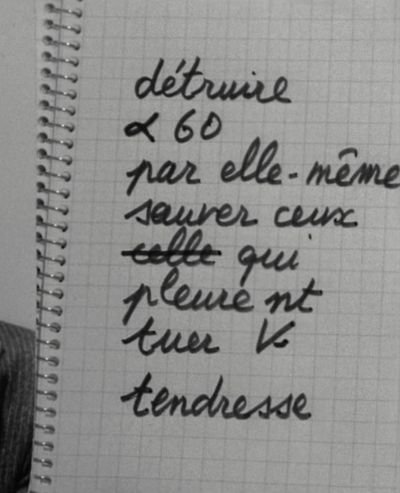 détruire
α 60
par elle-même
sauver ceux
celle qui
pleurent
tuer V.
tendresse